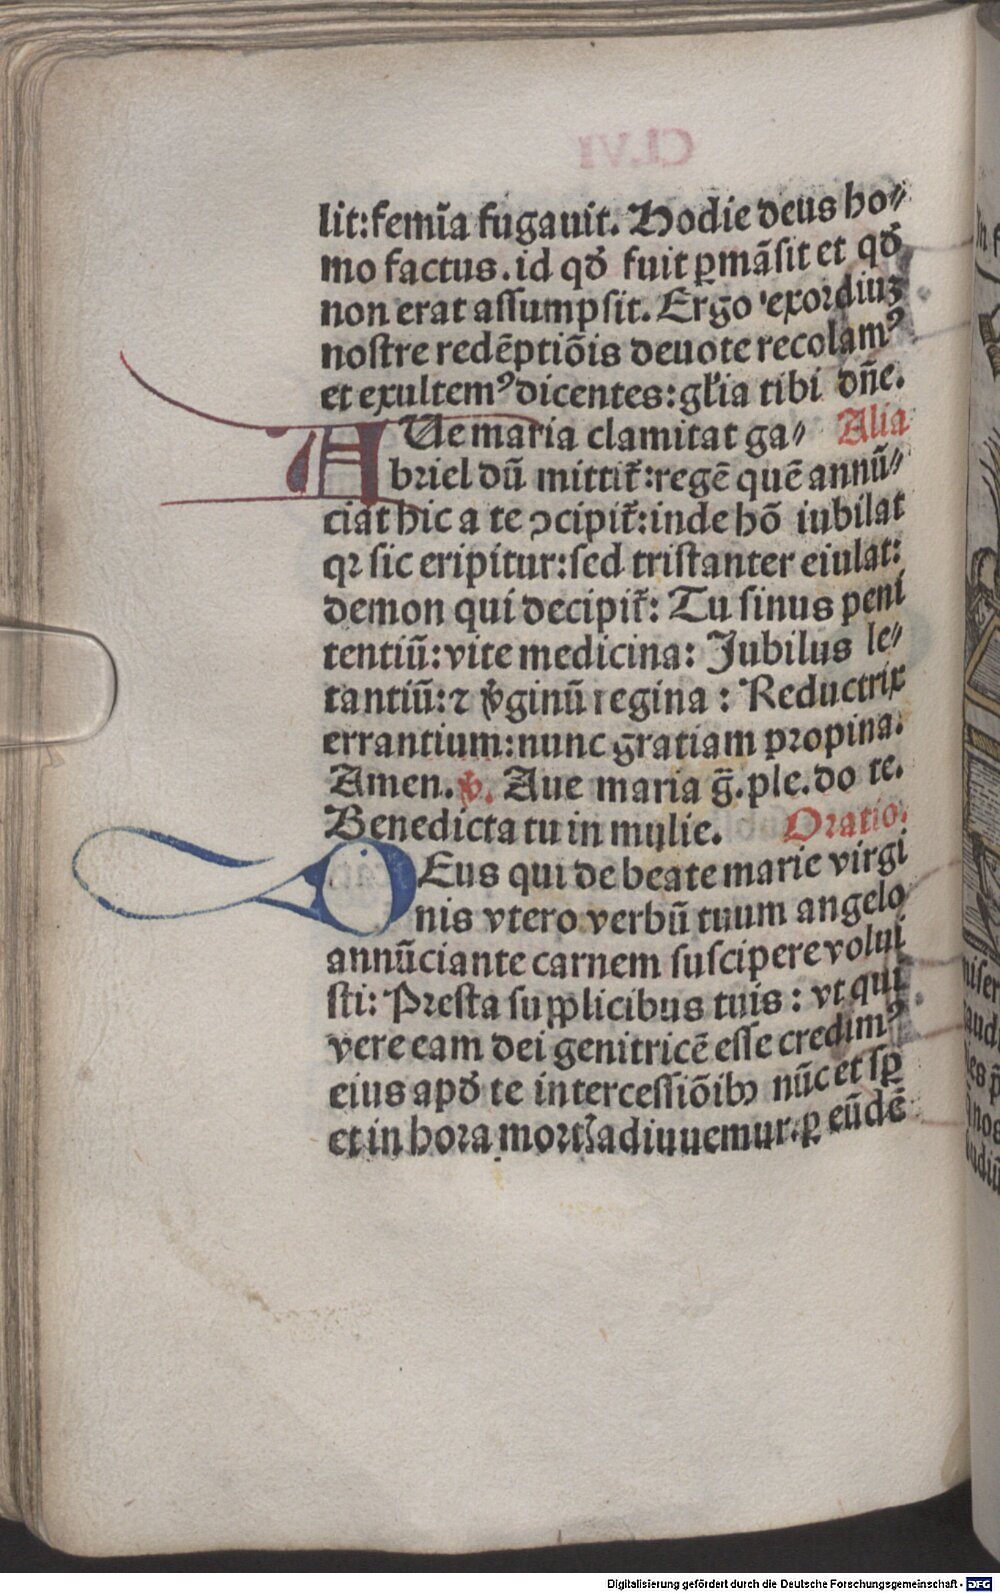 lit:femīa fugauit. Hodie deus ho⸗
mo factus.id qđ fuit ꝑmāsit et qđ
non erat assumpsit. Ergo exordiuꝫ
nostre redēptiōis deuote recolamꝰ
et exultemꝰ dicentes:gl̄ia tibi dn̄e.
AUe maria clamitat ga⸗ Alia
briel dū mittit̄:regē quē annū⸗
ciat hic a te ↄcipit̄:inde hō iubilat
qꝛ sic eripitur:sed tristanter eiulat:
demon qui decipit̄: Tu sinus peni
tentiū:vite medicina: Jubilus le⸗
tantiū:⁊ v̄ginū regina : Reductrix
errantium:nunc gratiam propina.
Amen. ꝟ. Aue maria ḡ.ple.do te.
Benedicta tu in mulie. Oratio.
DEus qui de beate marie virgi
nis vtero verbū tuum angelo
annūciante carnem suscipere volui
sti: Presta supplicibus tuis : vt qui
vere eam dei genitricē esse credimꝰ
eius apđ te intercessiōibꝫ nūc et sꝑ
et in hora mortꝭ adiuuemur.ꝑ eūdē
Digitalisierung gefördert durch die Deutsche Forschungsgemeinschaft - DFG